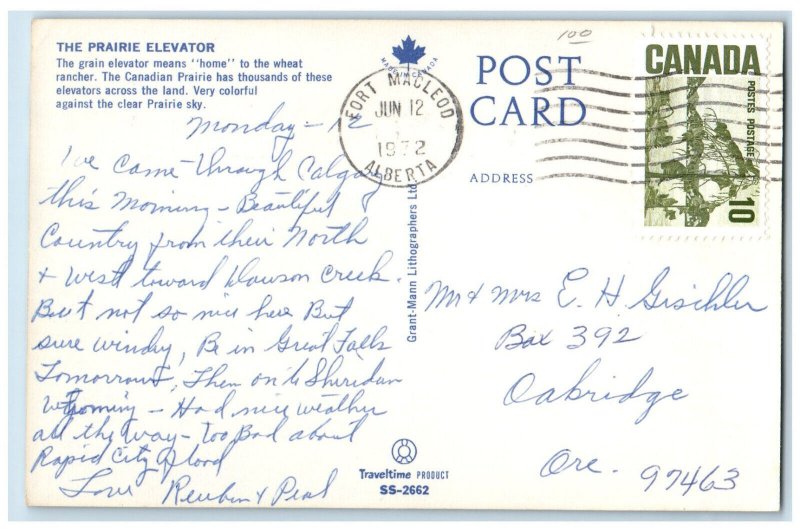 THE PRAIRIE ELEVATOR
The grain elevator means "home" to the wheat
rancher. The Canadian Prairie has thousands of these
elevators across the land. Very colorful
against the clear Prairie sky.
Monday - 12
I've Came through Calgary
this Morning - Beautiful
Country from their North
+ West toward Dawson Creek.
But not so nice here But
sure windy, Be in Great Falls
Tomorrow, Then on to Sheridan
Wyoming - Had nice weather
all the way - too Bad about
Rapid City flood
Love Reuben & Pearl
MADE IN CANADA
FORT MACLEOD
JUN 12
1972
ALBERTA
Grant-Mann Lithographers Ltd.
Traveltime PRODUCT
SS-2662
100
POST
CARD
ADDRESS
CANADA
POSTES POSTAGE
10
Mr & Mrs E. H. Gischler
Box 392
Oakridge
Ore. 97463